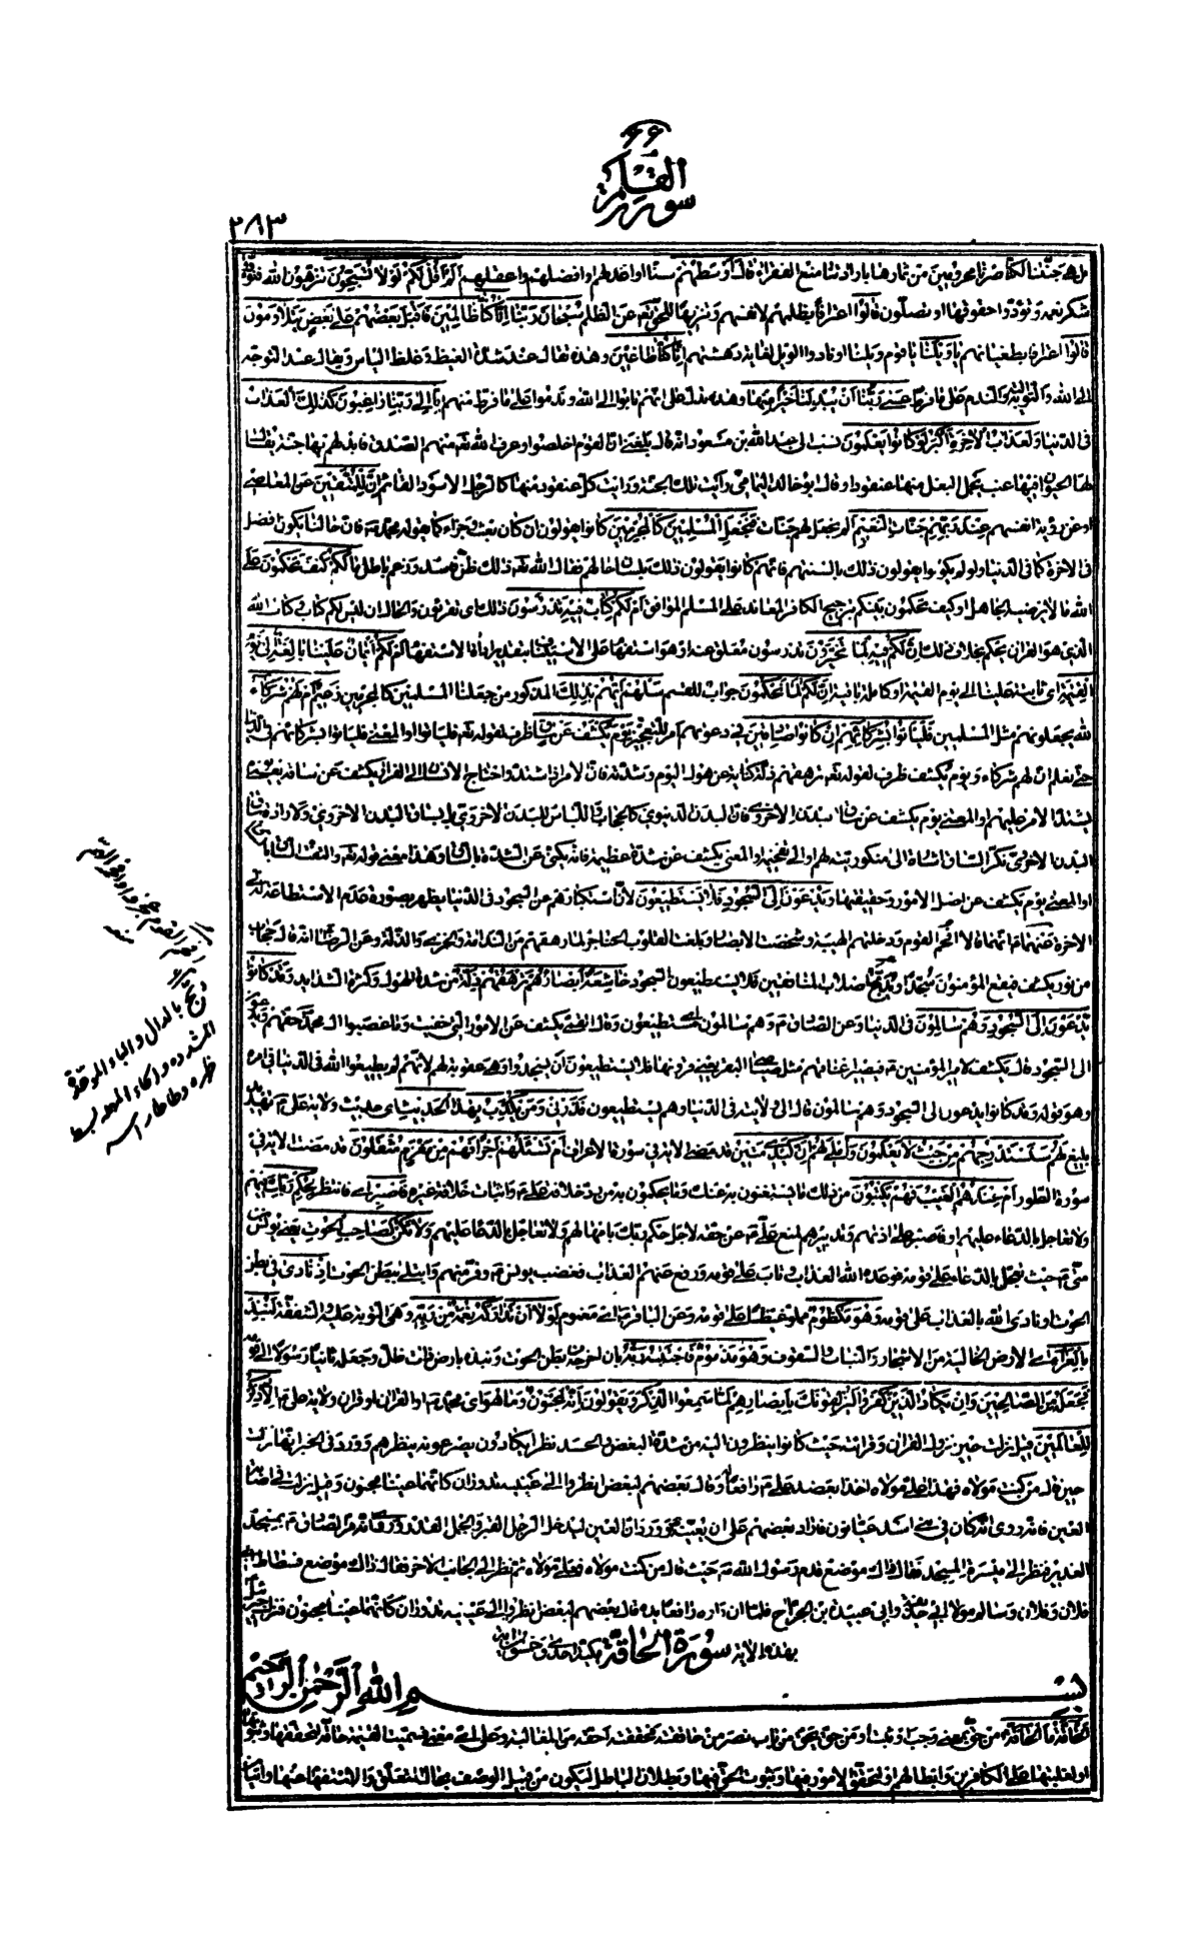 سورة القلم
٢٨٣
بل هي جنّتنا لكنّا صرنا محرومين من ثمارها بارادتنا منع الفقراء قال أوسطهم سنّا او اعدلهم او افضلهم واعقلهم ألم أقل لكم لولا تسبّحون تنزهون الله
شكر نعمه وتؤدّوا حقوقها او تصلّون قالوا اعترافا بظلمهم لانفسهم وتنزيها للحقّ تعالى عن الظلم سبحان ربّنا إنّا كنّا ظالمين فأقبل بعضهم على بعض يتلاومون
قالوا اعترافا بطغيانهم يا ويلنا يا قوم ويلنا او نادوا الويل لغاية دهشتهم إنّا كنّا طاغين وهذه تقال عند شدّة الغيظ وغلظ الناس ويقال عند التوجّه
الى الله والتوبة والندم على ما فرط عسى ربّنا أن يبدلنا خيرا منها وهذه تدلّ على انّهم تابوا الى الله وندموا على ما فرط منهم إنّا إلى ربّنا راغبون كذلك العذاب
فى الدنيا ولعذاب الآخرة أكبر لو كانوا يعلمون نسب الى عبد الله بن مسعود انّه قال بلغنى انّ القوم اخلصوا وعرف الله تعالى منهم الصدق فابدلهم بها جنّة يقال
لها الحيوان فيها عنب يحمل البغل منها عنقودا وقال ابو خالد اليمامىّ رأيت تلك الجنّة ورأيت كلّ عنقود منها كالرجل الاسود القائم إنّ للمتّقين عن المعاصى
او عن رؤية انفسهم عند ربّهم جنّات النعيم ألم نجعل لهم جنّات أفنجعل المسلمين كالمجرمين كانوا يقولون ان كان بعث وجزاء كما يقوله محمّد فانّ حالنا يكون افضل
فى الآخرة كما فى الدنيا ولو لم يكونوا يقولون ذلك بالسنتهم فانّهم كانوا يقولون ذلك بلسان حالهم فقال الله تعالى ذلك ظنّ فاسد وزعم باطل ما لكم كيف تحكمون على
الله ما لا يرضيه الجاهل او كيف تحكمون بينكم بترجيح الكافر المعاند على المسلم الموافق أم لكم كتاب فيه تدرسون ذلك اى تقرؤن والحال ان ليس لكم كتاب الّا كتاب الله
الذى هو القرآن يحكم بخلاف ذلك إنّ لكم فيه لما تخيّرون تدرسون معلّق عنه او هو استفهام على الاستيناف بتقدير اداة الاستفهام أم لكم أيمان علينا بالغة إلى يوم
القيامة اى ثابتة علينا الى يوم القيامة او كاملة باقية إنّ لكم لما تحكمون جواب للقسم سلهم أيّهم بذلك المذكور من جعلنا المسلمين كالمجرمين زعيم أم لهم شركاء
لله يجعلونهم مثل المسلمين فليأتوا بشركائهم إن كانوا صادقين فى دعوتهم امر للتعجيز يوم يكشف عن ساق ظرف لقوله تعالى فليأتوا او المعنى فليأتوا بشركائهم فى الدنيا
حتّى يعلم ان لهم شركاء ويوم يكشف ظرف لقوله تعالى ترهقهم ذلّة كناية عن هول اليوم وشدّته فانّ الامر اذا اشتدّ واحتاج الانسان الى الفرار يكشف عن ساقه يعنى
يشتدّ الامر عليهم او المعنى يوم يكشف عن ساق البدن الاخروىّ فانّ البدن الدنيوىّ كالحجاب واللباس للبدن الاخروىّ بل لساق البدن الاخروىّ
البدن الاخروىّ نكّر الساق اشارة الى منكوريّته لهم والى تفخيمه او المعنى يكشف عن شدّة عظيمة فانّه يكنّى عن الشدّة بالساق وهذا معنى قوله تعالى والتفّت الساق بالساق
او المعنى يوم يكشف عن اصل الامور وحقيقتها ويدعون إلى السجود فلا يستطيعون لانّ استكبارهم من السجود فى الدنيا يظهر بصورة عدم الاستطاعة فى
الآخرة عنهما انّهما قالا افحم القوم ودخلتهم الهيبة وشخصت الابصار وبلغت القلوب الحناجر لما رهقهم من الندامة والخزى والذلّة وعن الرضا انّه قال حجاب
من نور يكشف فيقع المؤمنون سجّدا وتدبّج اصلاب المنافقين فلا يستطيعون السجود خاشعة أبصارهم ترهقهم ذلّة من شدّة الهول وكثرة الشدايد وقد كانوا
يدعون إلى السجود وهم سالمون فى الدنيا وعن الصادق وهم سالمون اى مستطيعون وقال القمّىّ يكشف عن الامور التى خفيت وما غصبوا آل محمّد حقّهم ويدعون
الى السجود قال يكشف لامير المؤمنين فتصير اعناقهم مثل صياصى البقر يعنى قرونها فلا يستطيعون ان يسجدوا وهى عقوبة لهم لانّهم لم يطيعوا الله فى الدنيا فى امره
وهو قوله وقد كانوا يدعون الى السجود وهم سالمون قال الى ولايته فى الدنيا وهم يستطيعون فذرنى ومن يكذّب بهذا الحديث اى حديث ولاية علىّ تهديد
بليغ لهم سنستدرجهم من حيث لا يعلمون وأملى لهم إنّ كيدى متين قد مضى الآية فى سورة الاعراف أم تسئلهم أجرا فهم من مغرم مثقلون قد مضت الآية فى
سورة الطور أم عندهم الغيب فهم يكتبون من ذلك ما يستغنون به عنك وما يحكمون به من ردّ خلافة علىّ واثبات خلافة غيره فاصبر اى فانتظر لحكم ربّك فيهم
ولا تعاجل بالدعاء عليهم او فاصبر على اذاهم وتدبيرهم لمنع علىّ عن حقّه لاجل حكم ربّك بامهالهم ولا تعاجل بالدعاء عليهم ولا تكن كصاحب الحوت يعنى يونس بن
متّى حيث تعجّل بالدعاء على قومه فوعده الله العذاب وتاب على قومه ورفع عنهم العذاب فغضب يونس وفرّ منهم وابتلى ببطن الحوت إذ نادى فى بطن
الحوت او نادى الله بالعذاب على قومه وهو مكظوم مملوّ غيظا على قومه وعن الباقر اى مغموم لولا أن تداركه نعمة من ربّه وهى التوبة عليه والشفقة لنبذ
بالعراء اى الارض الخالية من الاشجار والنبات والسقوف وهو مذموم فاجتبه ربّه بان اخرجه من بطن الحوت ونبذه بارض ذات ظلّ وجعله ثانيا رسولا الى قومه
فجعله من الصالحين وإن يكاد الّذين كفروا ليزلقونك بأبصارهم لمّا سمعوا الذكر ويقولون إنّه لمجنون وما هو اى محمّد او القرآن او قرآن ولاية علىّ إلّا ذكر
للعالمين قيل نزلت حين نزول القرآن وقرائته حيث كانوا ينظرون اليه من شدّة البغض والحسد نظرا يكادون يصرعونه بنظرهم وورد فى الخبر انّها نزلت
حين قال من كنت مولاه فهذا علىّ مولاه اخذا بعضد علىّ رافعا وقال بعضهم لبعض انظروا الى عينيه تدوران كانّهما عينا مجنون وقيل نزلت فى اصابة
العين فانّه روى انّه كان فى بنى اسد عيّانون فاراد بعضهم على ان يعينه وورد انّ العين ليدخل الرجل القبر والجمل القدر وورد انّه مرّ الصادق بمسجد
الغدير فنظر الى ميسرة المسجد فقال ذاك موضع قدم رسول الله حيث قال من كنت مولاه فعلىّ مولاه ثمّ نظر الى الجانب الآخر فقال ذاك موضع فسطاط
فلان وفلان وسالم مولى ابى حذيفة وابى عبيدة بن الجرّاح فلمّا ان رأوه رافعا يده قال بعضهم لبعض انظروا الى عينيه تدوران كانّهما عينا مجنون فنزل جبرئيل
بهذه الآية سورة الحاقّة مكّيّة احدى وخمسون آية
بسم الله الرّحمن الرّحيم
الحاقّة ما الحاقّة من حقّ بمعنى وجب او ثبت او من حقّ يحقّ من باب نصر من حاققته فحققته احقّه من المغالبة وعلى اىّ معنى سمّيت القيمة حاقّة لتحقّقها وثبوتها
او لغلبتها على الكافرين وابطالهم او لتحقّق الامور فيها وثبوت الحقّ فيها وبطلان الباطل ليكون من قبيل الوصف بحال المتعلّق والاستفهام عنها واتيان
افحم القوم عجزوا
منه
تدبّج بالدال والباء الموحّدة
المشدّدة والحاء المهملة بسط
ظهره وطأطأ رأسه